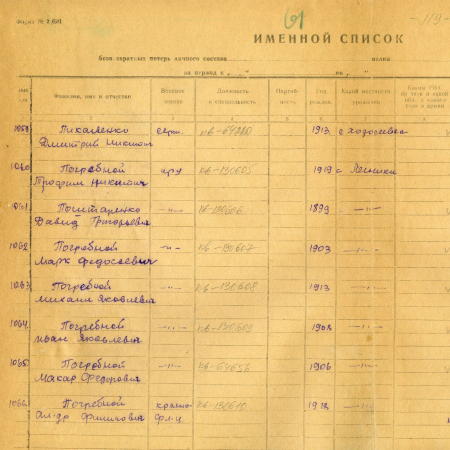 Форма № 2/БП
61
— 119 —
ИМЕННОЙ СПИСОК
безвозвратных потерь личного состава полка
на период с „ по „
Фамилия, имя и отчество
Военное звание
Должность и специальность
Партийность
Год рожден.
Какой местности уроженец
Каким РВК
1059 Пикаленко Дмитрий Никитич серж. кв-64280 1913 с Ходосеевка
1060 Погребной Трофим Никитич кру кв-130605 1919 с Лесники
1061 Поштаренко Давид Григорьевич —"— кв-130606 1899 —"—
1062 Погребной Марк Федосеевич —"— кв-130607 1903 —"—
1063 Погребной Михаил Яковлевич —"— кв-130608 1913 —"—
1064. Погребной Иван Яковлевич —"— кв-130609 1908 —"—
1065. Погребной Макар Федорович —"— кв-64656 1906 —"—
1066. Погребной Ал-др Филипович красно-фл-ц кв-130610 1918 —"—